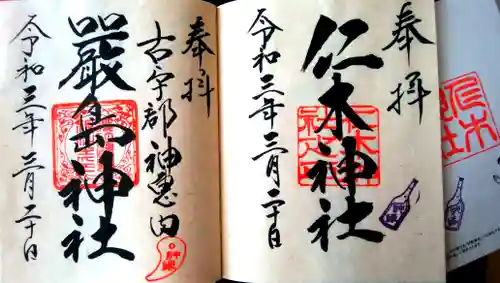 奉拝
仁木神社
令和三年三月二十日
奉拝
古宇郡神恵内
厳島神社
令和三年三月二十日